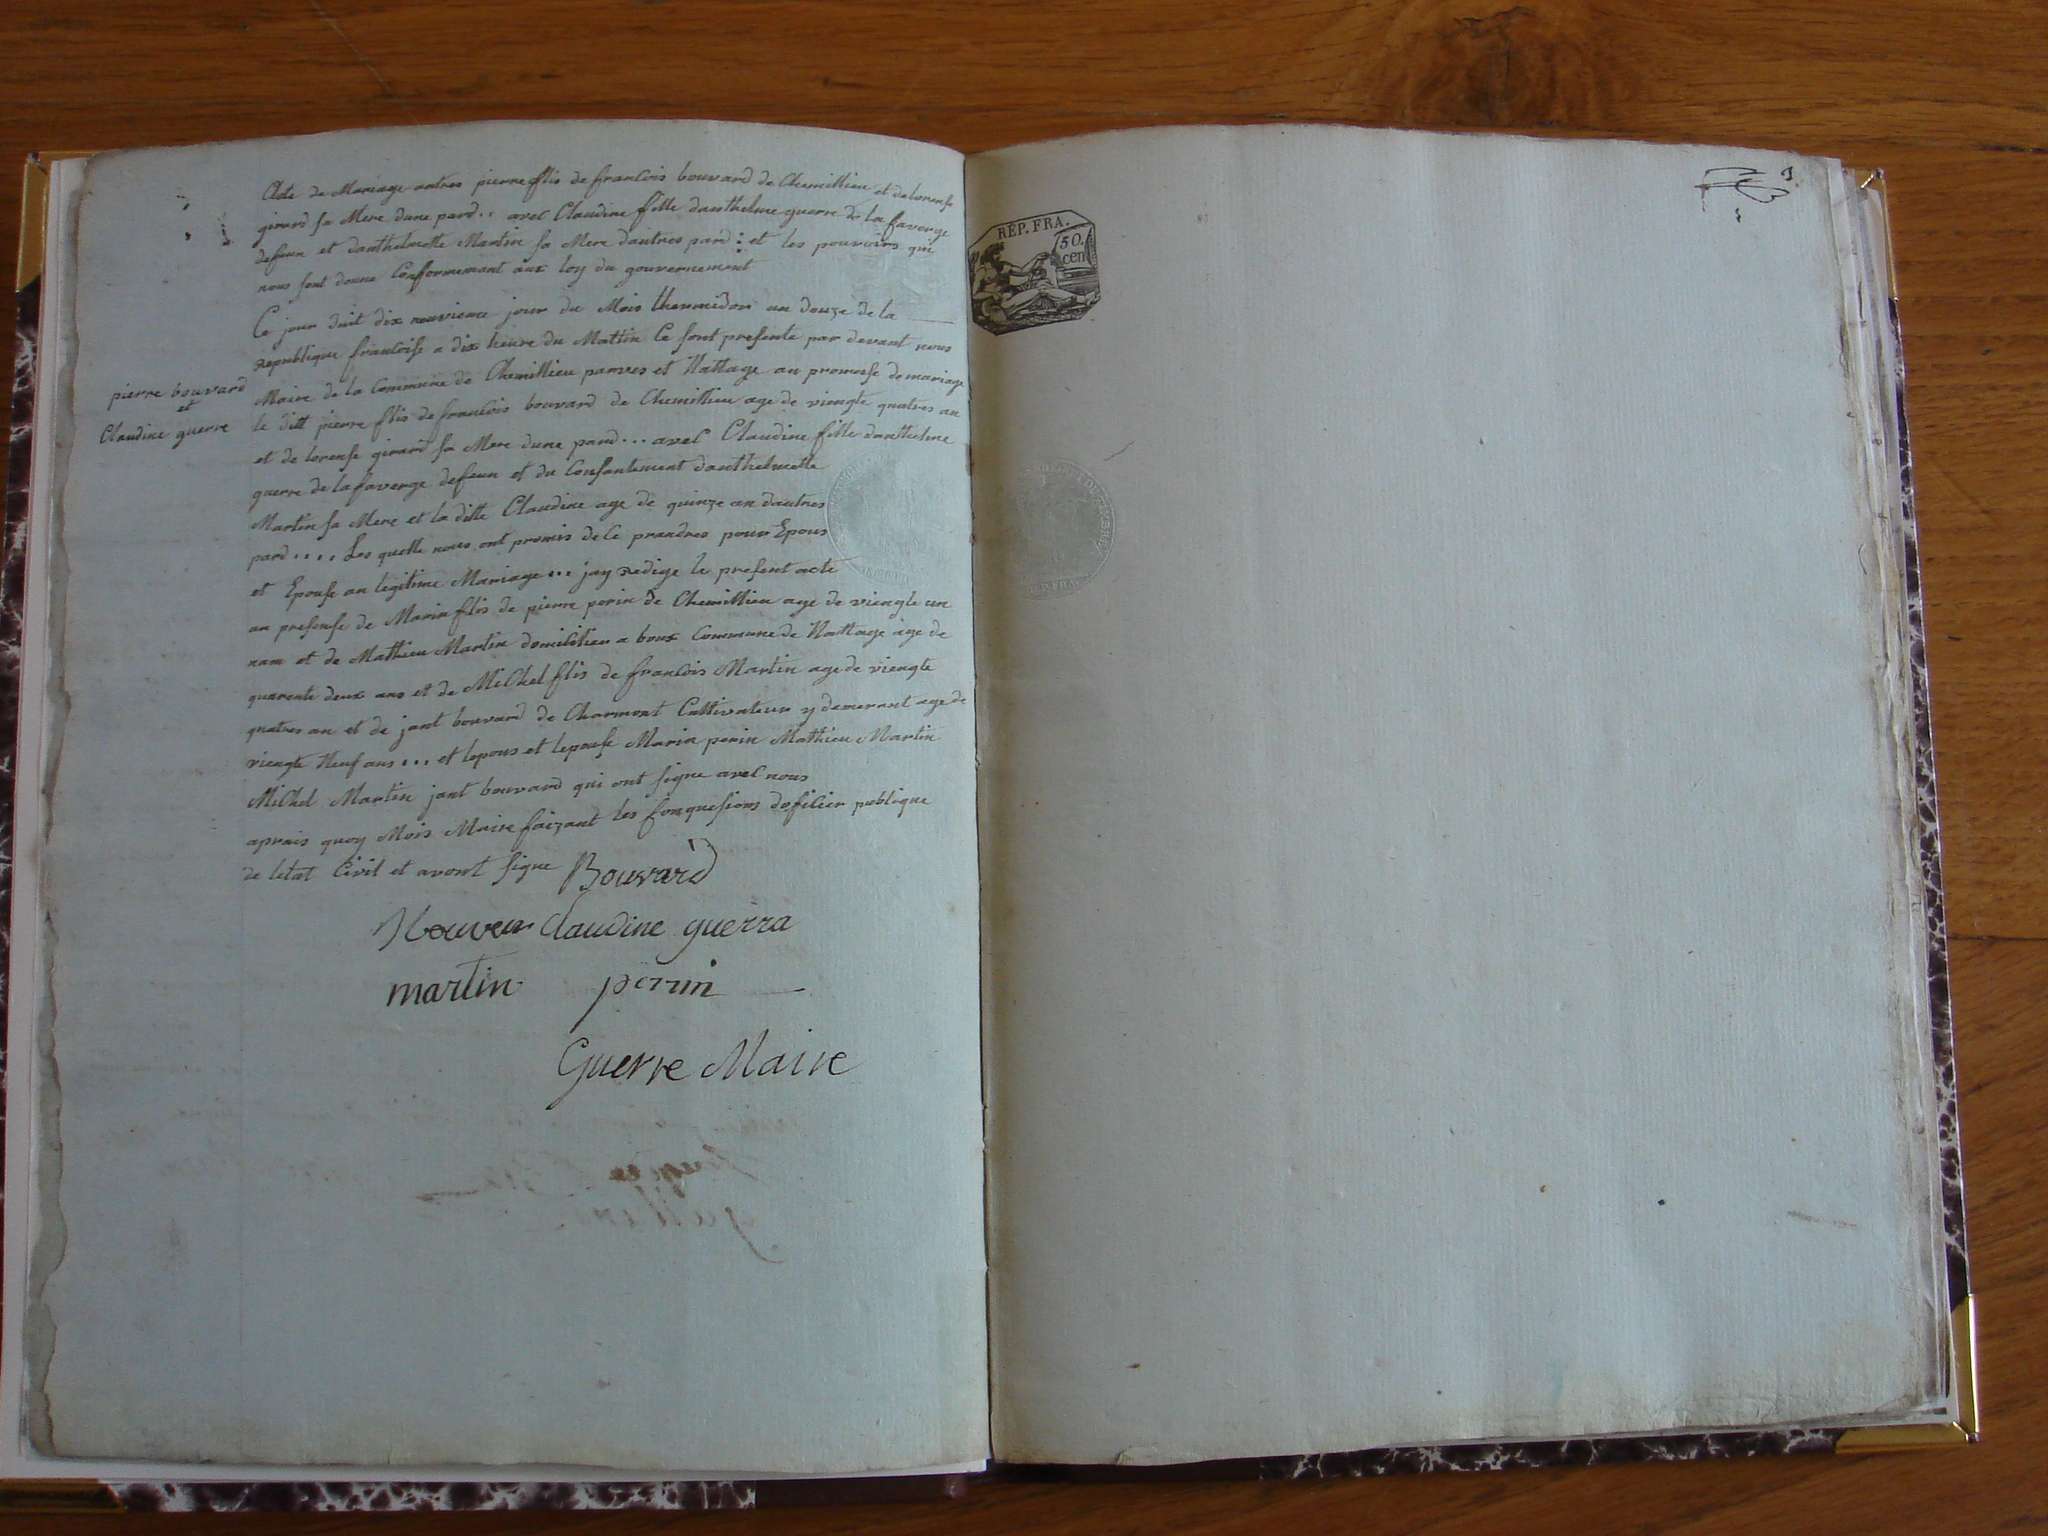 Acte de Mariage antres pierre flis de francois bouvard de Chemillieu et de lorense
girard sa Mere dune pard.. avec Claudine fille danthelme guerre de la faverge
defeun et danthelmette Martin sa Mere dautres pard : et les pouvoirs qui
nous sont donne Conformemant aux loy du gouvernement
Ce jour duit dix neuvieme jour du Mois thermidor an douze de la
republique francoise a dix heure du Mattin Ce sont presente par devant nous
Maire de la Commune de Chemillieu parves et Nattage au promesse de mariage
pierre bouvard
et
Claudine guerre
le ditt pierre flis de francois bouvard de Chemillieu age de viengte quatres an
et de lorense girard sa Mere dune pard... avec Claudine fille danthelme
guerre de lafaverge defeun et du Consantement danthelmette
Martin sa Mere et la ditte Claudine age de quinze an dautres
pard.... Les quelle nous ont promis de Ce prandres pour Epous
et Epouse an legitime Mariage... jay redige le present acte
an presense de Marin flis de pierre perin de Chemillieu age de viengte un
nam et de Mathieu Martin domicilieu a boux Commune de Nattage age de
quarente deux ans et de Michel flis de francois Martin age de viengte
quatres an et de jant bouvard de Charmont Cultivateur y demerant age de
viengte Neuf ans... et lepous et lepouse Marin perin Mathieu Martin
Michel Martin jant bouvard qui ont signe avec nous
aprais quoy Mois Maire faizant les fonquesions dofisier publique
de letat Civil et avont signe Bouvard
Claudine guerra
martin perrin
Guerre Maire
3
REP. FRA.
50.
cen